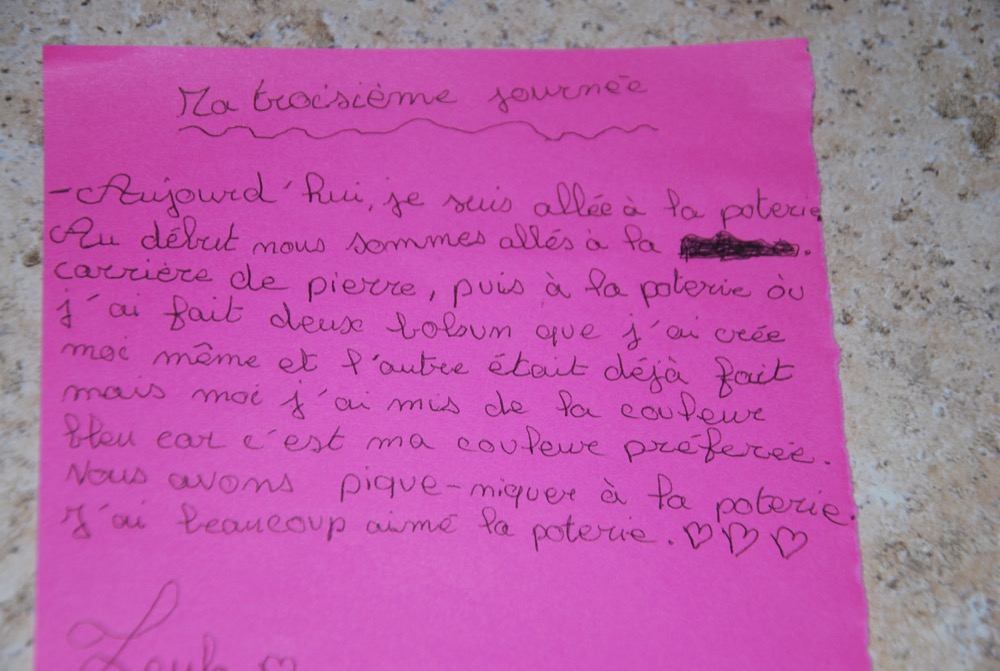 Ma troisième journée
- Aujourd'hui, je suis allée à la poterie
Au début nous sommes allés à la .
carrière de pierre, puis à la poterie où
j'ai fait deux bols un que j'ai crée
moi même et l'autre était déjà fait
mais moi j'ai mis de la couleur
bleu car c'est ma couleur préferée.
Nous avons pique-niquer à la poterie.
J'ai beaucoup aimé la poterie. ♡♡♡